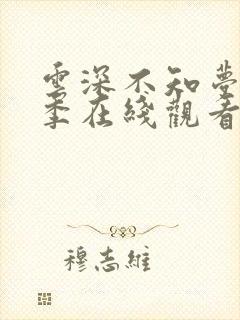 雲深不知夢
季在綫觀看
穆志維